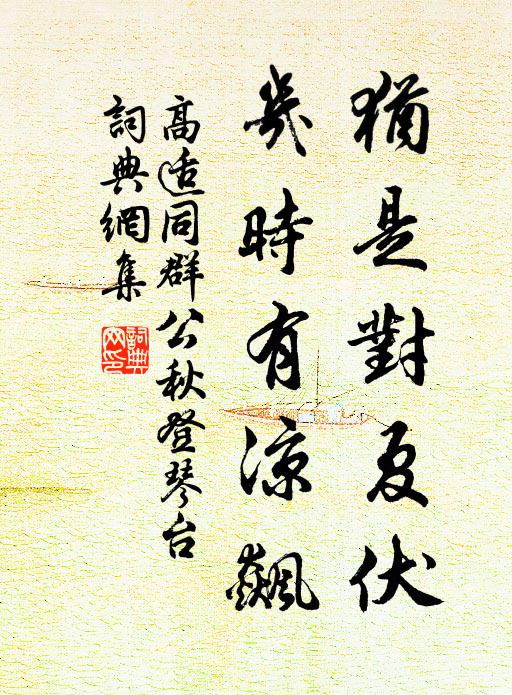 猶是對夏伏
幾時有涼飆
高适同群公秋登琴台
詞典網集
詞典網印